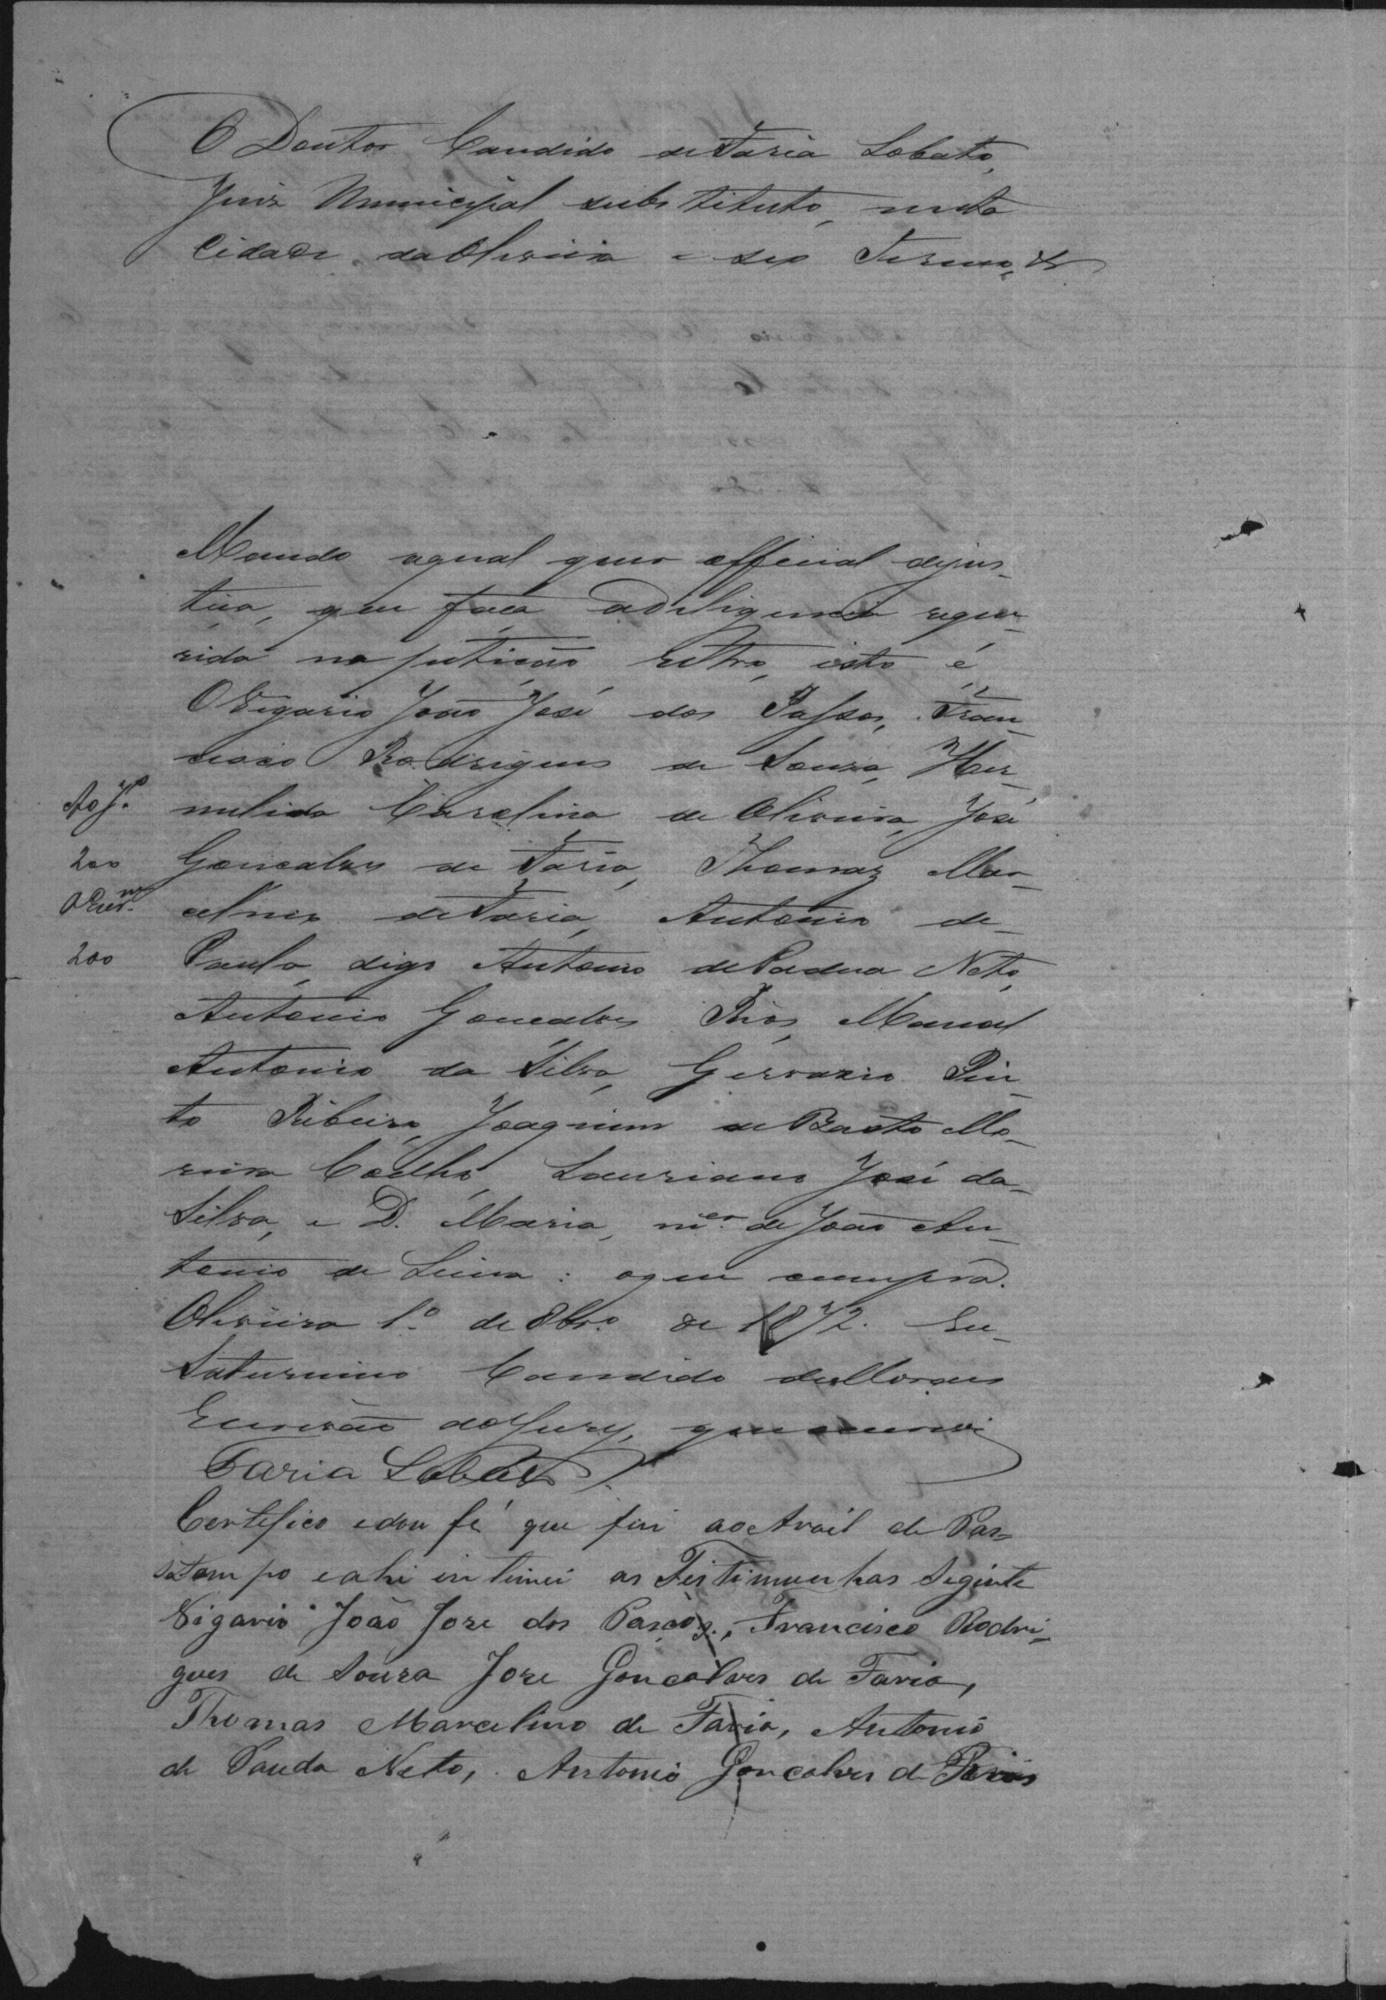 O Doutor Candido de Faria Lobato,
Juiz Municipal substituto, nesta
Cidade da Oliveira e seo Termo, &
Mando aqual quer official dejus-
tiça, que faça adiligencia reque-
rida na petição retro, isto é,
O Vigario João José dos Passos, Fran-
cisco Rodrigues de Souza, Her-
melinda Carolina de Oliveira, José
Ao J.º
200
Gonçalves de Faria, Thomaz Mar-
celino de Faria, Antonio de
200
Paula, digo Antonio de Padua Neto,
Antonio Gonçalves Rios, Manoel
Antonio da Silva, Gervazio Pin-
to Ribeiro, Joaquim de Basto Mo-
reira Coelho, Lauriano José da
Silva, e D. Maria, m.er de João An-
tonio de Lima: oque cumpra.
Oliveira 1.º de 8br.º de 1872. Eu
Saturnino Candido de Moraes
Escrivão do Jury, que escrevi
Faria Lobato.
Certifico edou fé que fui ao Arail de Pas-
satempo eahi intimei as Testimunhas Seginte
Vigario João Jose dos Passos, Francisco Rodri-
gues de Souza Jose Gonçalves de Faria,
Thomas Marcelino de Faria, Antonio
de Pauda Neto, Antonio Gonçalves de Rios